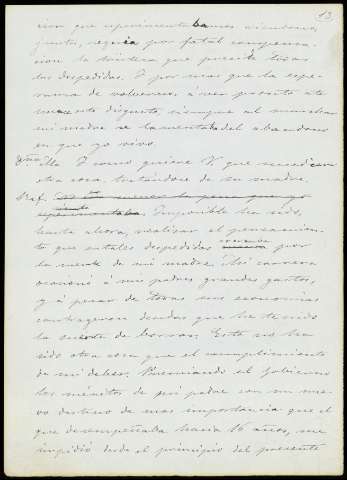 13
cion que esperimentabamos viendonos
juntos, seguia por fatal compensa-
cion la tristeza que precede todas
las despedidas. Y por mas que la espe-
ranza de volvernos a ver pronto ate-
nuase esto disgusto, siempre al marchar
mi madre se lamentaba del abandono
en que yo vivo.
Ella Y como quiere V que sucediera
otra cosa, tratándose de su madre.
Raf. la pena que yo
esperimentaba. Imposible ha sido,
hasta ahora, realizar el pensamien-
to que en tales despedidas por
la mente de mi madre. Mi carrera
ocasionó á mis padres grandes gastos,
y á pesar de todas sus economias
contrageron deudas que he tenido
la suerte de borrar. Esto no ha
sido otra cosa que el cumplimiento
de mi deber. Premiando el Gobierno
los méritos de mi padre con un nue-
vo destino de mas importancia que el
que desempeñaba hacia 16 años, me
impidió desde el principio del presente